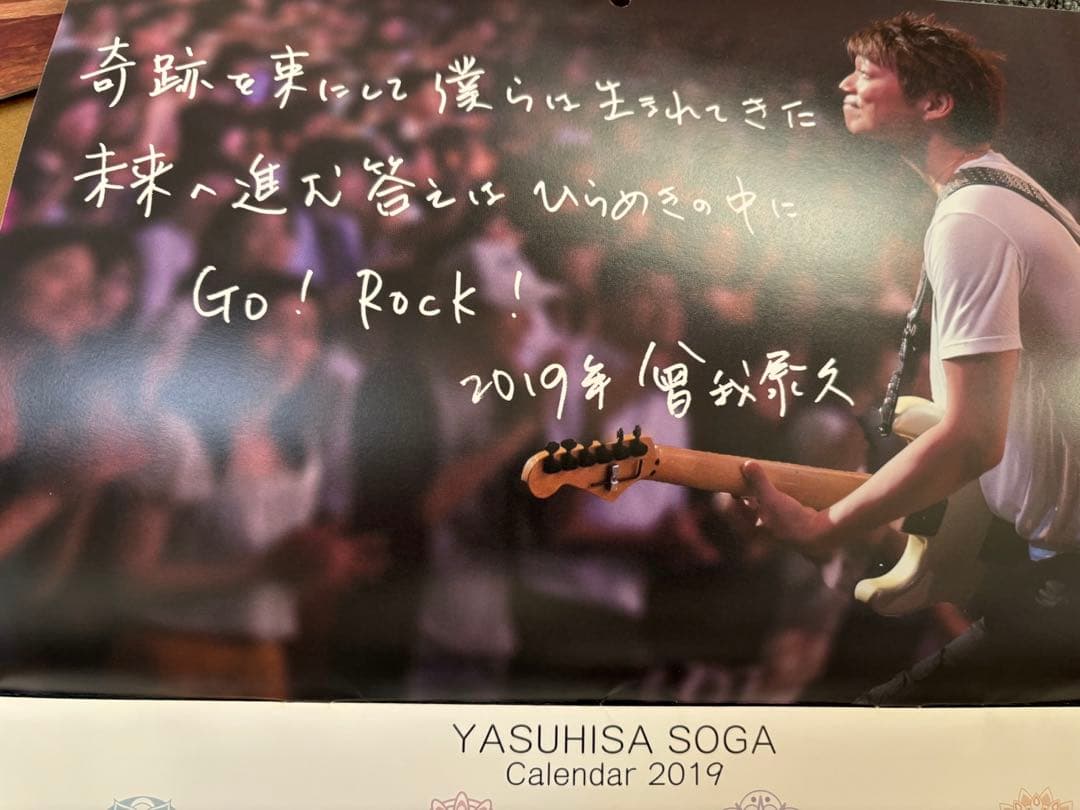 奇跡を束にして僕らは生まれてきた
未来へ進む答えは ひらめきの中に
Go! Rock!
2019年 曾我泰久
YASUHISA SOGA
Calendar 2019